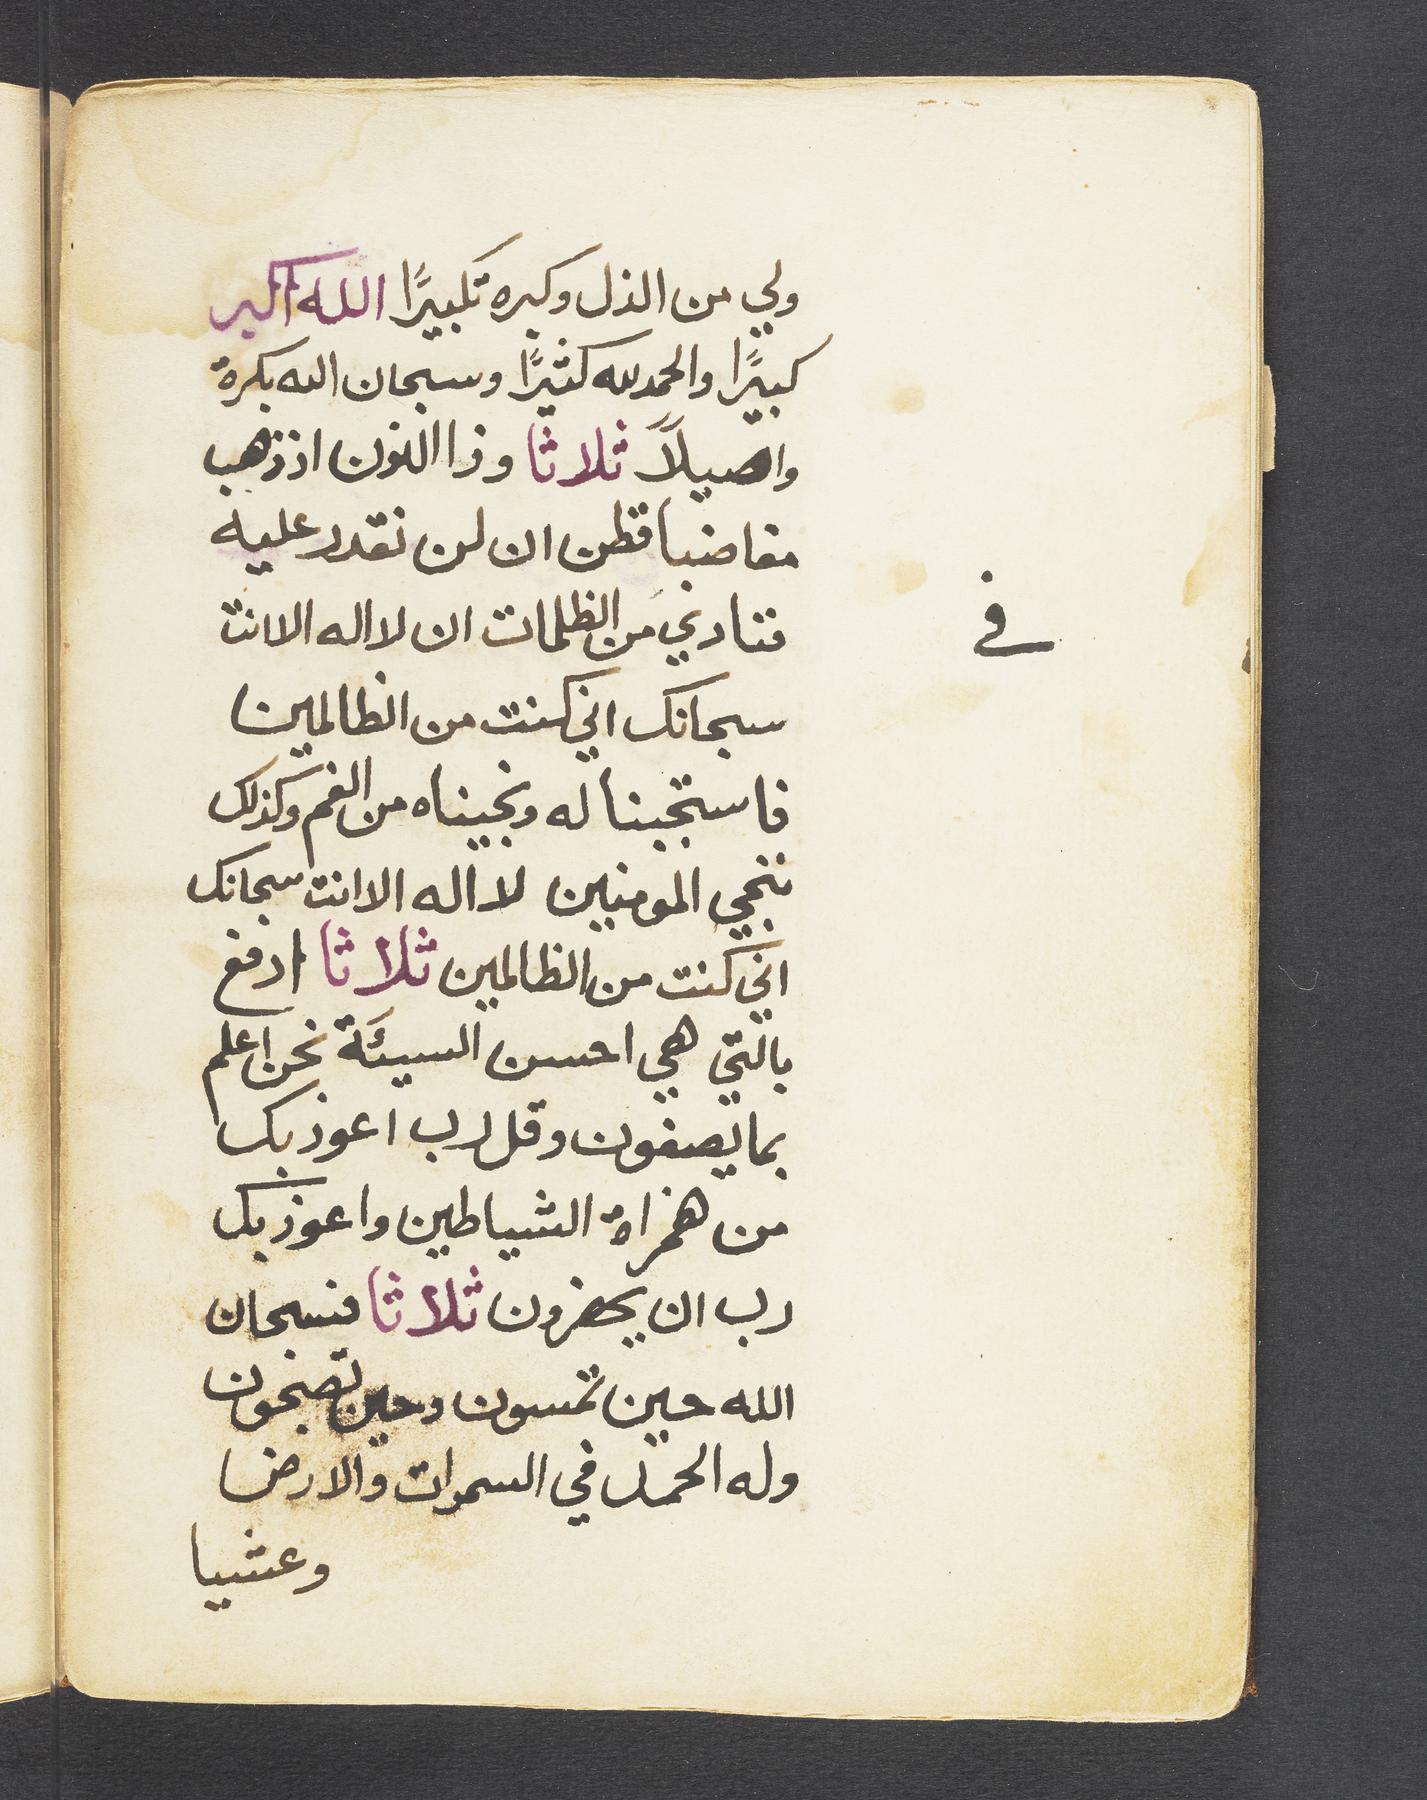 ولي من الذل وكبره تكبيرًا الله اكبر
كبيرًا والحمدلله كثيرًا وسبحان الله بكرة
واصيلاً ثلاثا وذا النون اذ ذهب
مغاضبا فظن ان لن نقدر عليه
فنادي من الظلمات ان لا اله الا انت
في
سبحانك اني كنت من الظالمين
فاستجبنا له ونجيناه من الغم وكذلك
ننجي المومنين لا اله الا انت سبحانك
اني كنت من الظالمين ثلاثا ادفع
بالتي هي احسن السيئة نحن اعلم
بما يصفون وقل رب اعوذ بك
من همزاة الشياطين واعوذ بك
رب ان يحضرون ثلاثا فسبحان
الله حين تمسون وحين تصبحون
وله الحمد في السموات والارض
وعشيا